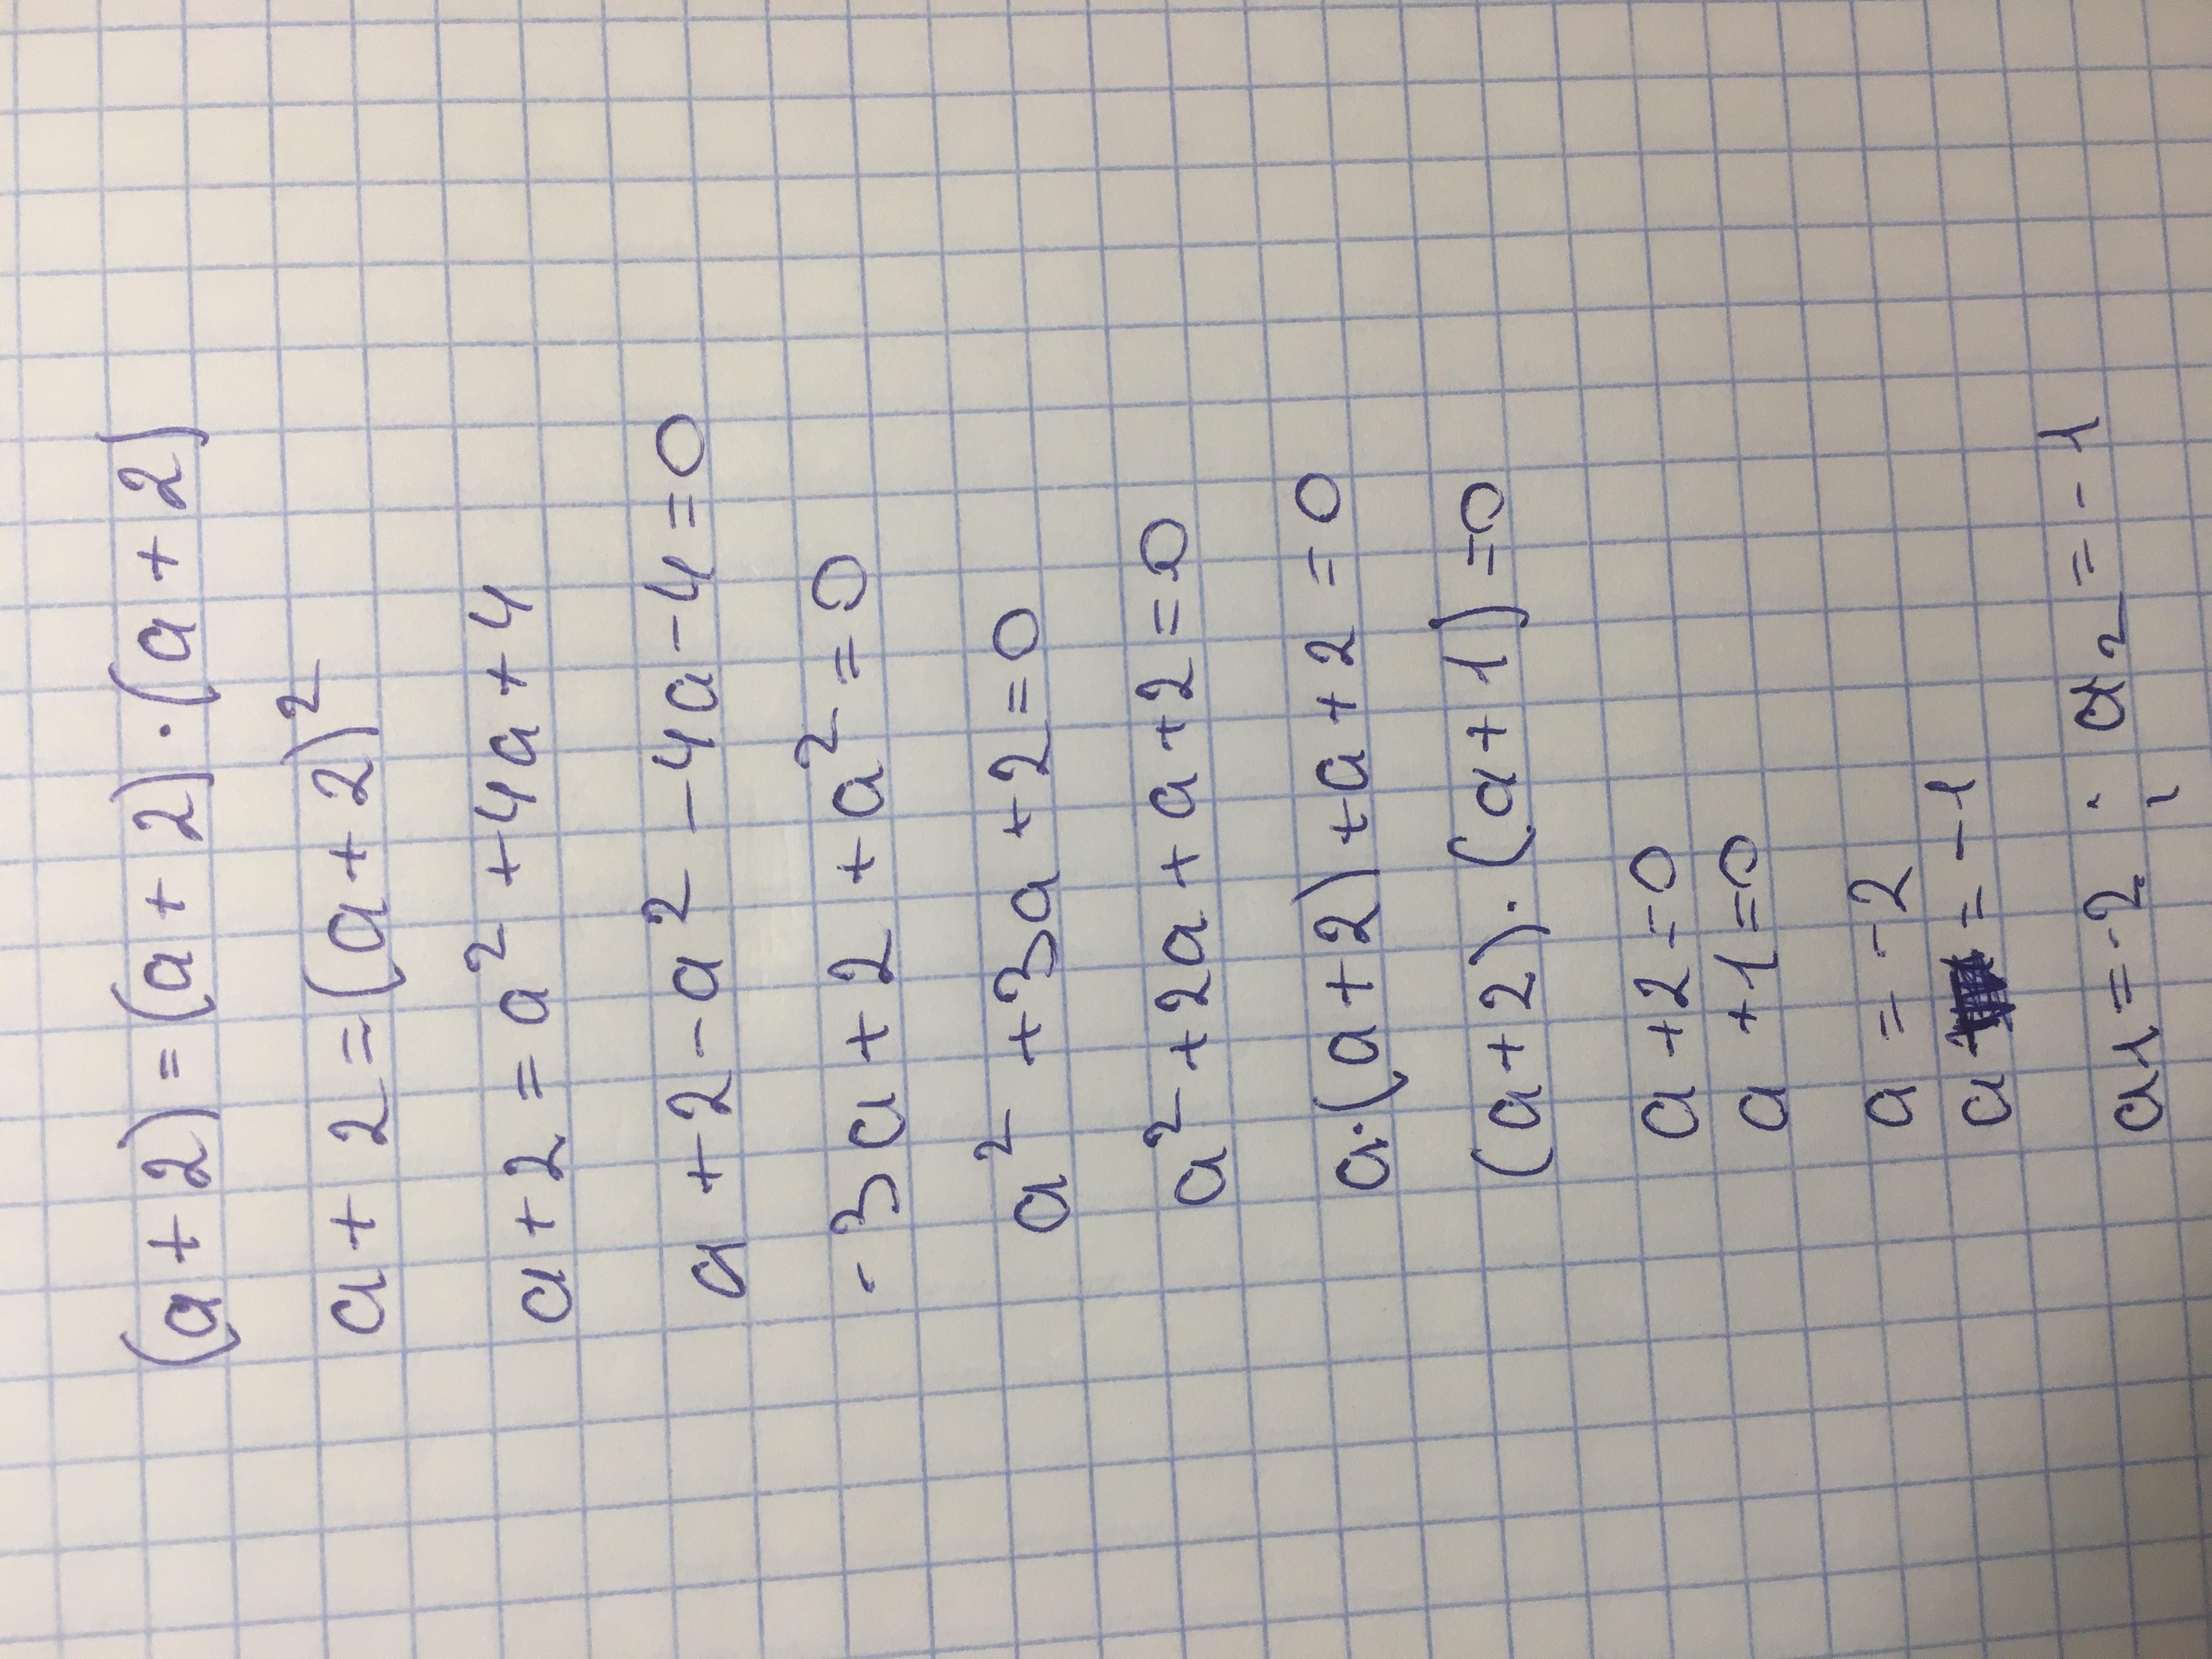 (a+2)=(a+2)·(a+2)
a+2=(a+2)²
a+2=a²+4a+4
a+2-a²-4a-4=0
-3a+2+a²=0
a²+3a+2=0
a²+2a+a+2=0
a·(a+2)+a+2=0
(a+2)·(a+1)=0
a+2=0
a+1=0
a=-2
a=-1
a1=-2; a2=-1